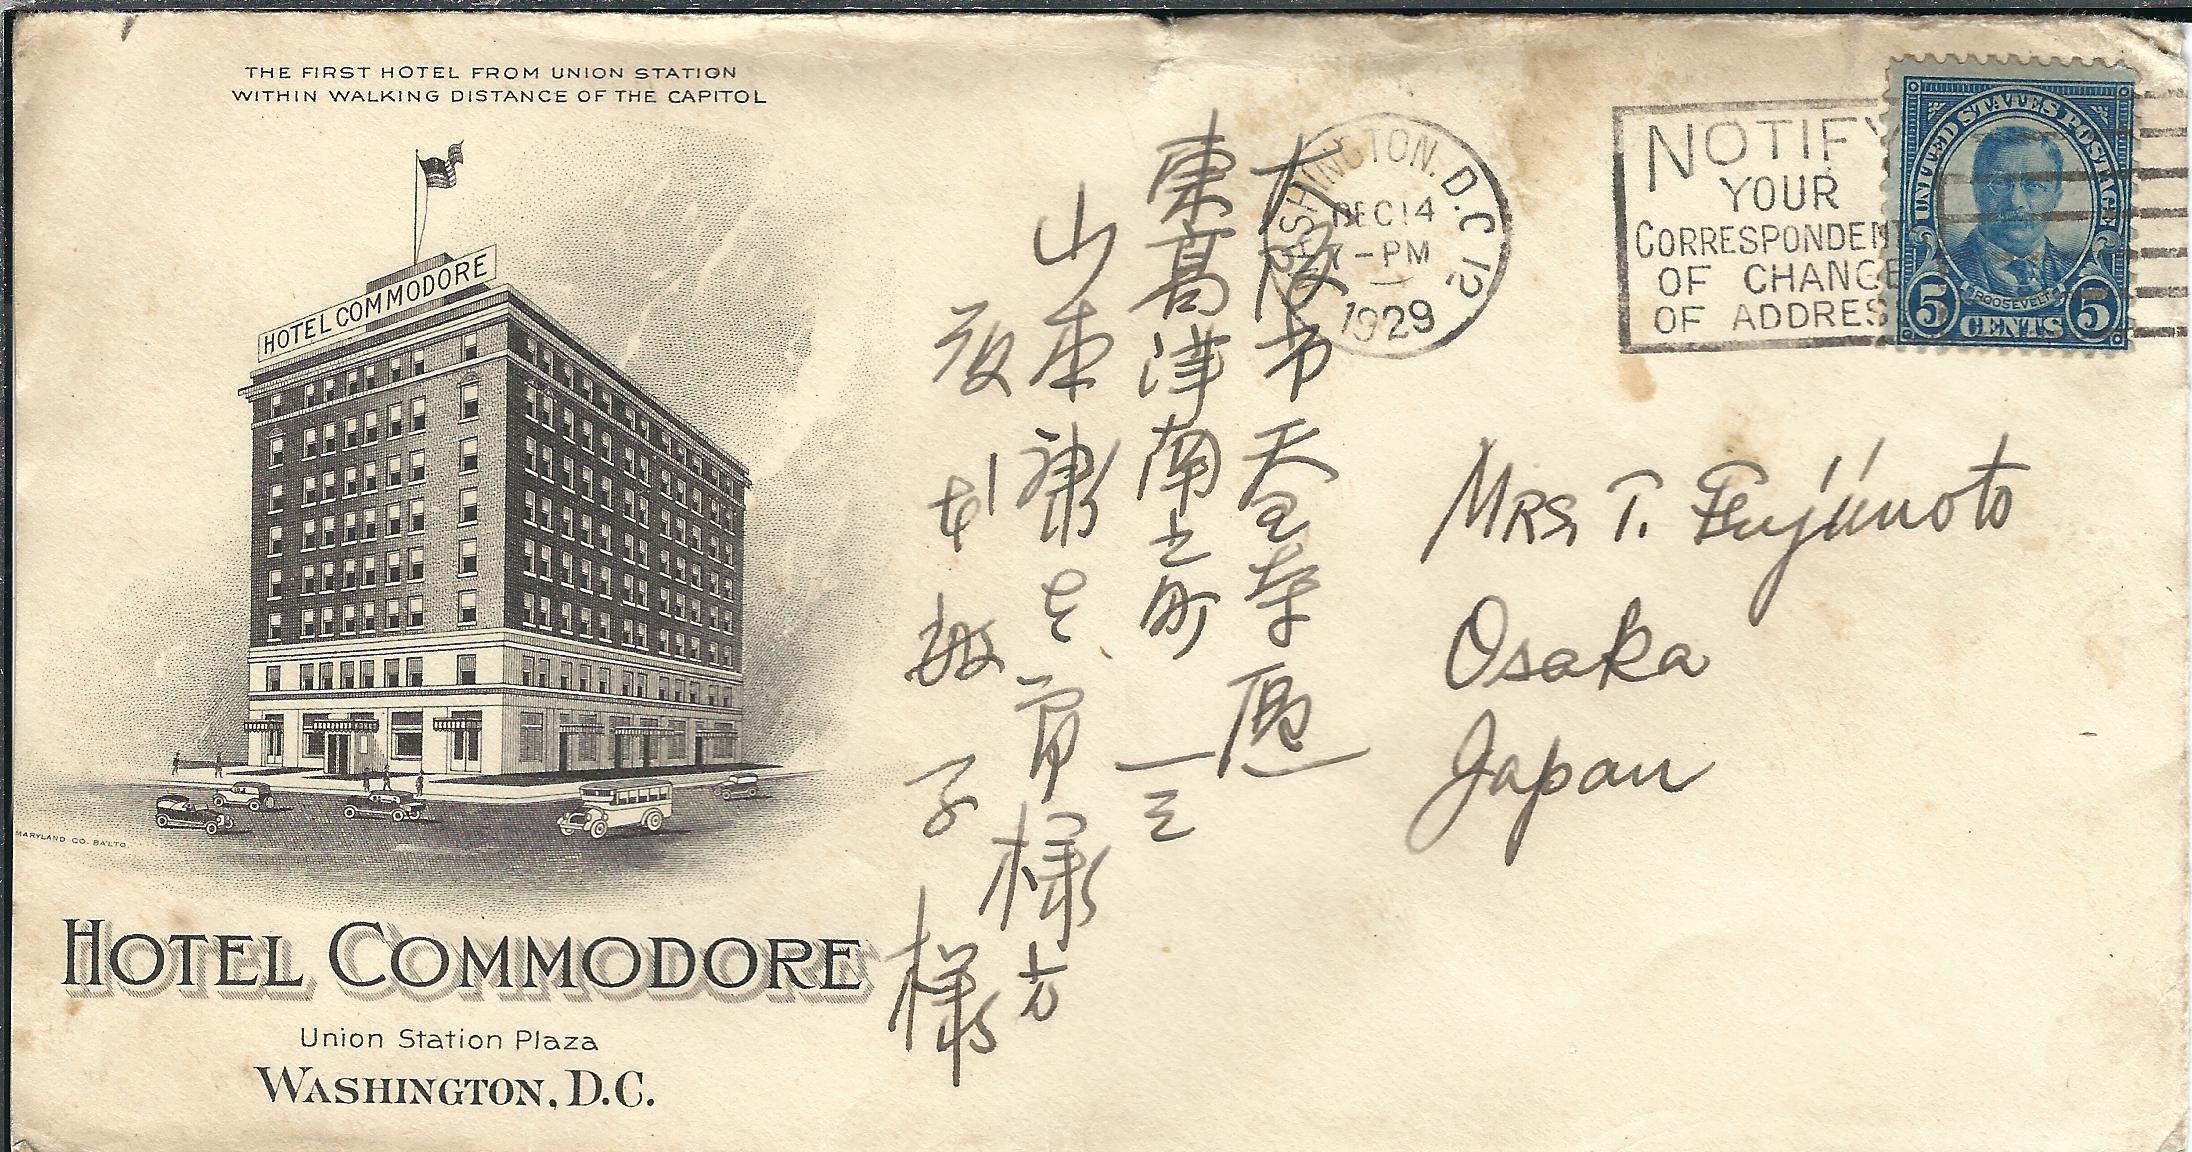 THE FIRST HOTEL FROM UNION STATION
WITHIN WALKING DISTANCE OF THE CAPITOL
HOTEL COMMODORE
MARYLAND CO. BALTO.
HOTEL COMMODORE
Union Station Plaza
WASHINGTON, D.C.
大阪市天王寺區
東高津南之町一三
山本衛様方
本敏子様
WASHINGTON, D.C. 12
DEC 14
7-PM
1929
NOTIFY
YOUR
CORRESPONDEN
OF CHANGE
OF ADDRES
UNITED STATES POSTAGE
ROOSEVELT
5 CENTS 5
Mrs. T. Fujimoto
Osaka
Japan